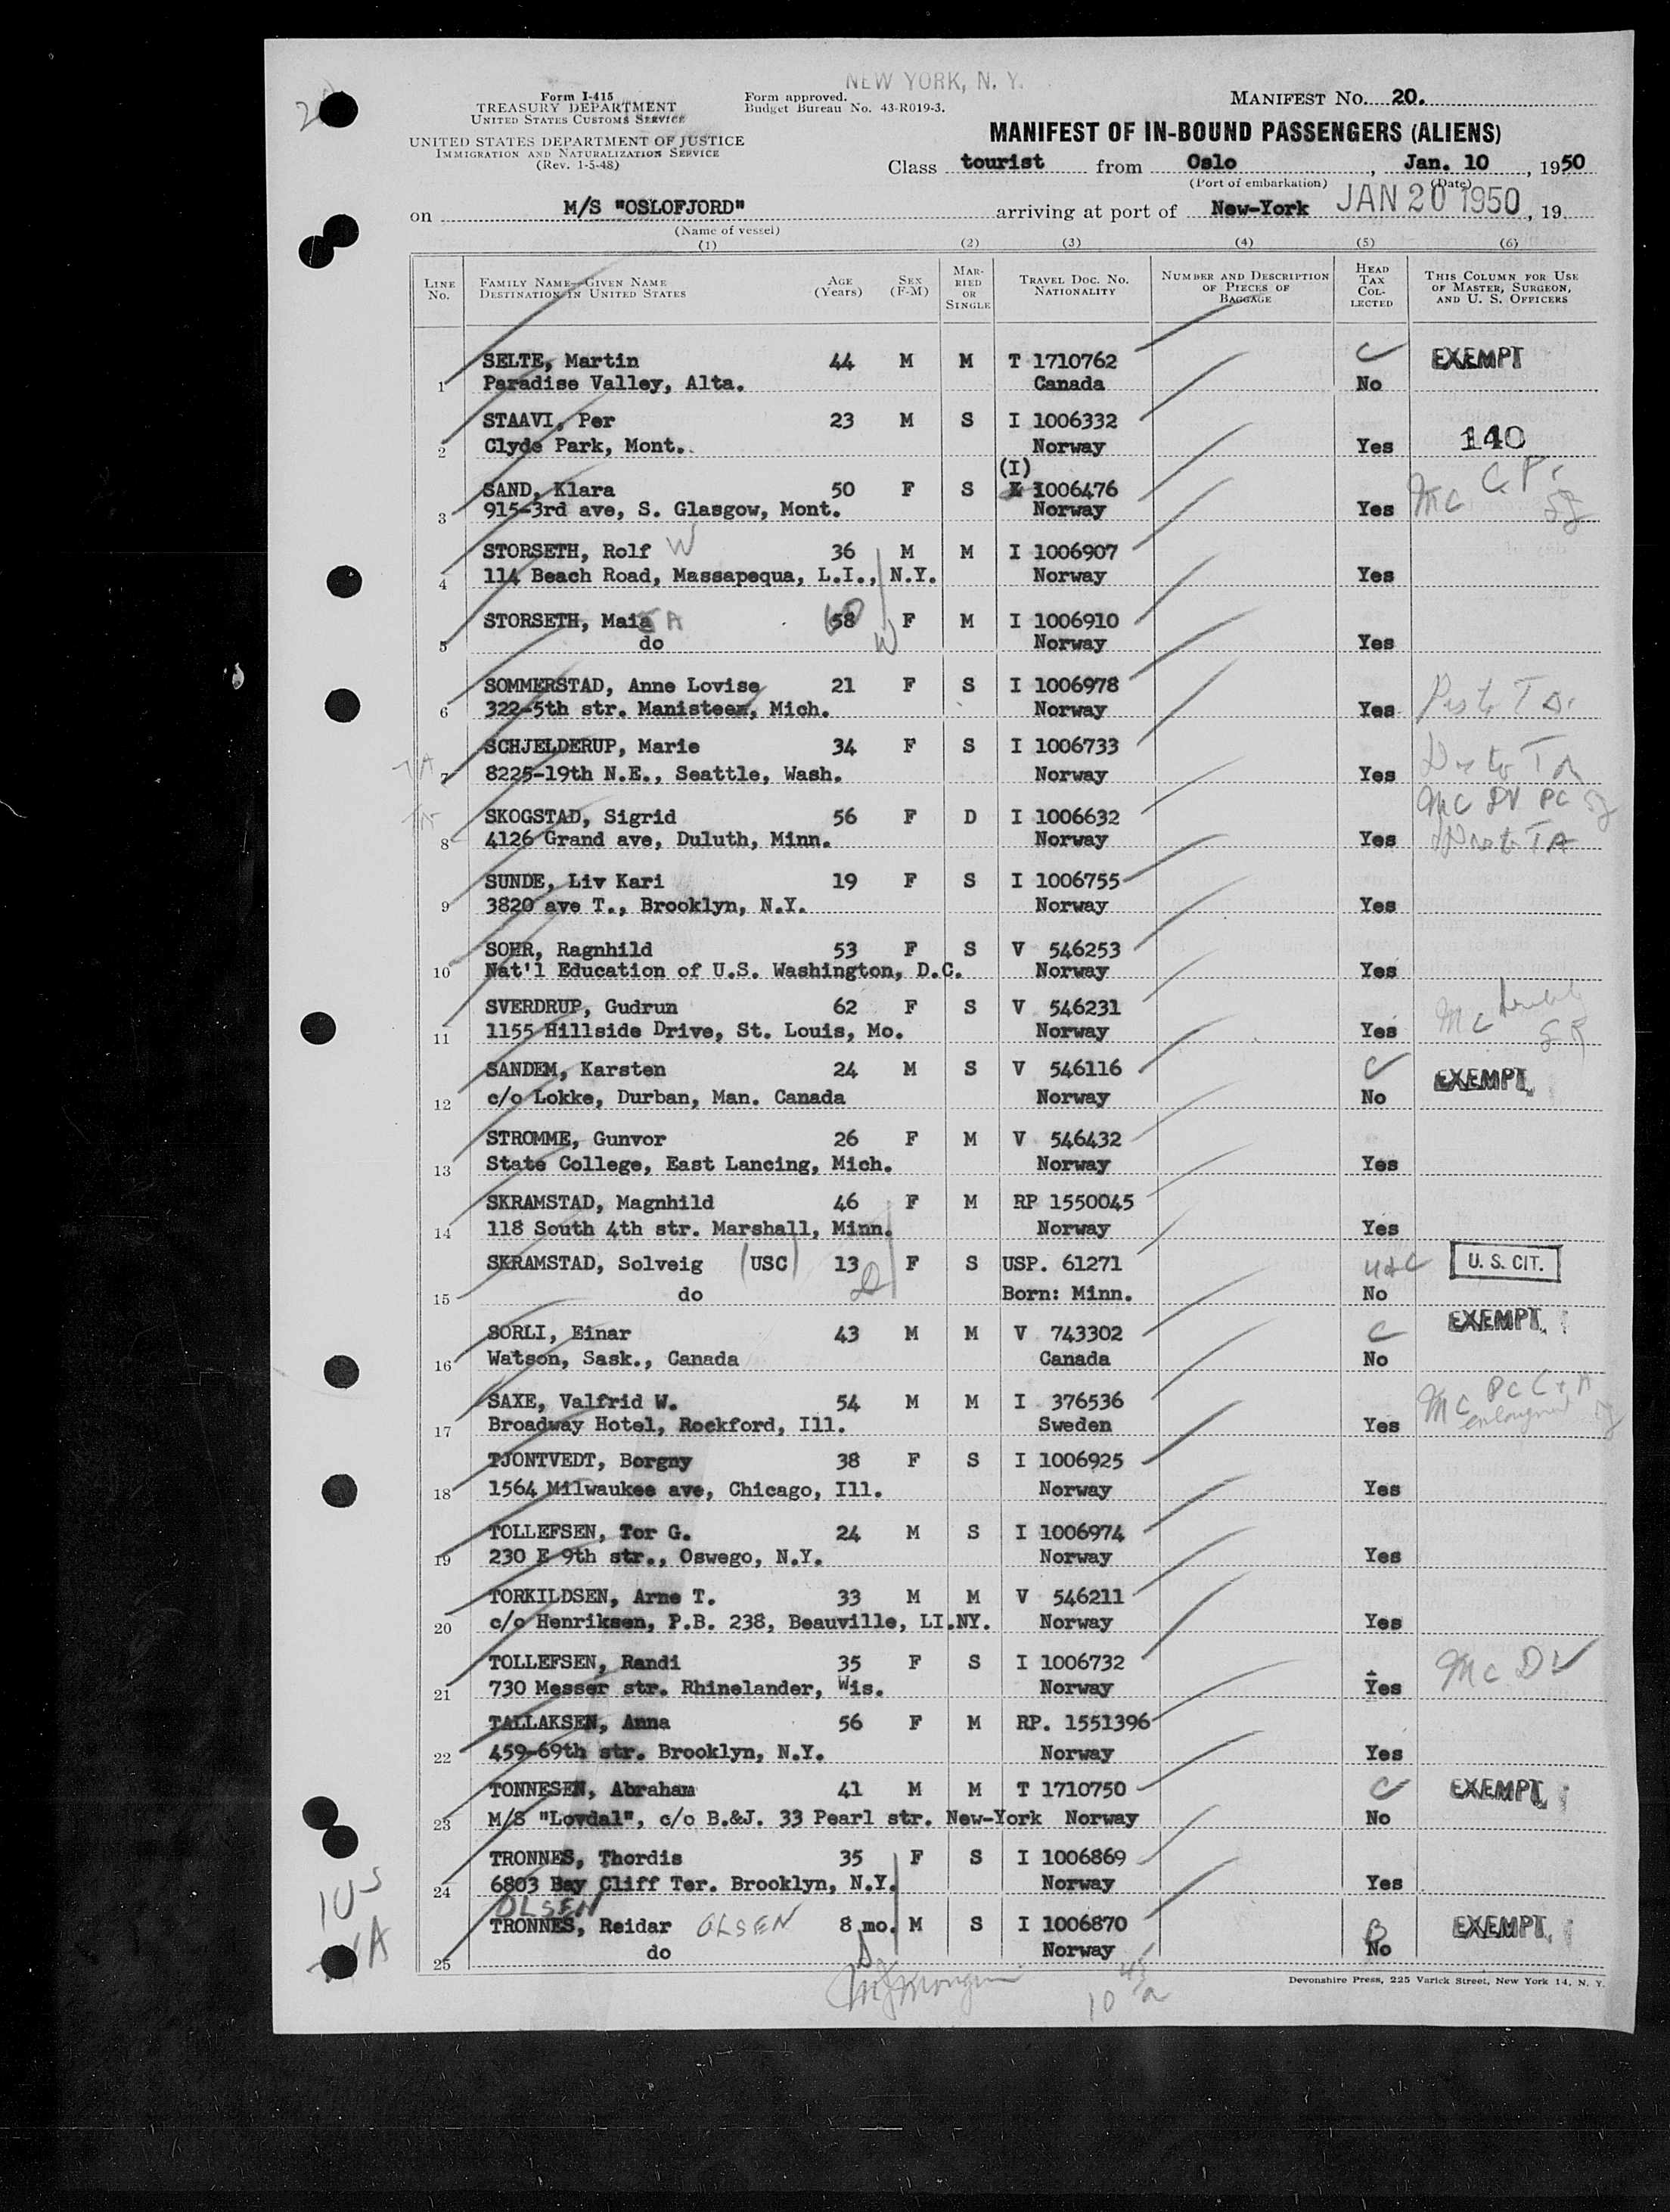 NEW YORK, N. Y.
Form I-415
TREASURY DEPARTMENT
UNITED STATES CUSTOMS SERVICE
UNITED STATES DEPARTMENT OF JUSTICE
IMMIGRATION AND NATURALIZATION SERVICE
(Rev. 1-5-48)
Form approved.
Budget Bureau No. 43-R019-3.
MANIFEST NO. 20.
MANIFEST OF IN-BOUND PASSENGERS (ALIENS)
Class tourist from Oslo, Jan. 10, 1950
(Port of embarkation) (Date)
on M/S "OSLOFJORD" arriving at port of New-York JAN 20 1950, 19
(Name of vessel)
(1) (2) (3) (4) (5) (6)
LINE NO. FAMILY NAME—GIVEN NAME DESTINATION IN UNITED STATES AGE (Years) SEX (F-M) MARRIED OR SINGLE TRAVEL DOC. NO. NATIONALITY NUMBER AND DESCRIPTION OF PIECES OF BAGGAGE HEAD TAX COLLECTED THIS COLUMN FOR USE OF MASTER, SURGEON, AND U. S. OFFICERS
SELTE, Martin 44 M M T 1710762 C EXEMPT
1 Paradise Valley, Alta. Canada No
STAAVI, Per 23 M S I 1006332
2 Clyde Park, Mont. Norway Yes 140
(I)
SAND, Klara 50 F S 1006476 MC
3 915-3rd ave, S. Glasgow, Mont. Norway Yes
STORSETH, Rolf W 36 M M I 1006907
4 114 Beach Road, Massapequa, L.I., N.Y. Norway Yes
STORSETH, Maia 58 F M I 1006910
5 do W Norway Yes
SOMMERSTAD, Anne Lovise 21 F S I 1006978
6 322-5th str. Manisteem, Mich. Norway Yes
SCHJELDERUP, Marie 34 F S I 1006733
7 8225-19th N.E., Seattle, Wash. Norway Yes
SKOGSTAD, Sigrid 56 F D I 1006632 MC DV PC
8 4126 Grand ave, Duluth, Minn. Norway Yes
SUNDE, Liv Kari 19 F S I 1006755
9 3820 ave T., Brooklyn, N.Y. Norway Yes
SOHR, Ragnhild 53 F S V 546253
10 Nat'l Education of U.S. Washington, D.C. Norway Yes
SVERDRUP, Gudrun 62 F S V 546231 MC
11 1155 Hillside Drive, St. Louis, Mo. Norway Yes
SANDEM, Karsten 24 M S V 546116 C EXEMPT
12 c/o Lokke, Durban, Man. Canada Norway No
STROMME, Gunvor 26 F M V 546432
13 State College, East Lancing, Mich. Norway Yes
SKRAMSTAD, Magnhild 46 F M RP 1550045
14 118 South 4th str. Marshall, Minn. Norway Yes
SKRAMSTAD, Solveig (USC) 13 F S USP. 61271 U. S. CIT.
15 do D Born: Minn. No
SORLI, Einar 43 M M V 743302 C EXEMPT
16 Watson, Sask., Canada Canada No
SAXE, Valfrid W. 54 M M I 376536 MC
17 Broadway Hotel, Rockford, Ill. Sweden Yes
TJONTVEDT, Borgny 38 F S I 1006925
18 1564 Milwaukee ave, Chicago, Ill. Norway Yes
TOLLEFSEN, Tor G. 24 M S I 1006974
19 230 E 9th str., Oswego, N.Y. Norway Yes
TORKILDSEN, Arne T. 33 M M V 546211
20 c/o Henriksen, P.B. 238, Beauville, LI.NY. Norway Yes
TOLLEFSEN, Randi 35 F S I 1006732 MC DV
21 730 Messer str. Rhinelander, Wis. Norway Yes
TALLAKSEN, Anna 56 F M RP. 1551396
22 459-69th str. Brooklyn, N.Y. Norway Yes
TONNESEN, Abraham 41 M M T 1710750 C EXEMPT
23 M/S "Lovdal", c/o B.&J. 33 Pearl str. New-York Norway No
TRONNES, Thordis 35 F S I 1006869
24 6803 Bay Cliff Ter. Brooklyn, N.Y. Norway Yes
OLSEN
TRONNES, Reidar OLSEN 8 mo. M S I 1006870 EXEMPT
25 do Norway No
Devonshire Press, 225 Varick Street, New York 14, N. Y.